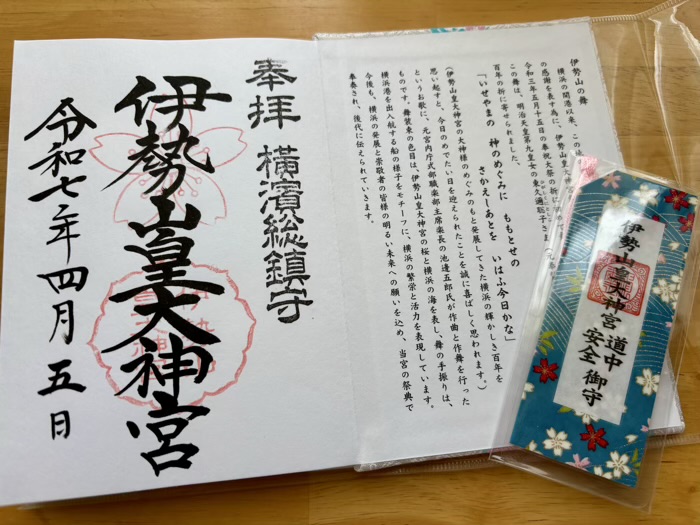 奉拝
横濱総鎮守
伊勢山皇大神宮
令和七年四月五日
伊勢山の舞
横浜の開港以来、この
の感謝を表す為に、伊勢山皇大神宮
令和三年五月十五日の奉祝大祭の折に
この舞は、明治天皇第九皇女の東久邇聡子さま
百年の折に寄せられました、
「いせやまの 神のめぐみに ももとせの
さかえしあとを いはふ今日かな」
(伊勢山皇大神宮の大神様のめぐみのもと発展してきた横浜の輝かしき百年を
思い起すと、今日のめでたい日を迎えられたことを誠に喜ばしく思われます。)
というお歌に、元宮内庁式部職楽部主席楽長の池邊五郎氏が作曲と作舞を行った
ものです。舞装束の色目は、伊勢山皇大神宮の桜と横浜の海を表し、舞の手振りは、
横浜港を出入航する船の様子をモチーフに、横浜の繁栄と活力を表現しています。
今後も、横浜の発展と崇敬者の皆様の明るい未来への願いを込め、当宮の祭典で
奉奏され、後代に伝えられていきます。
伊勢山皇大神宮
道中安全 御守